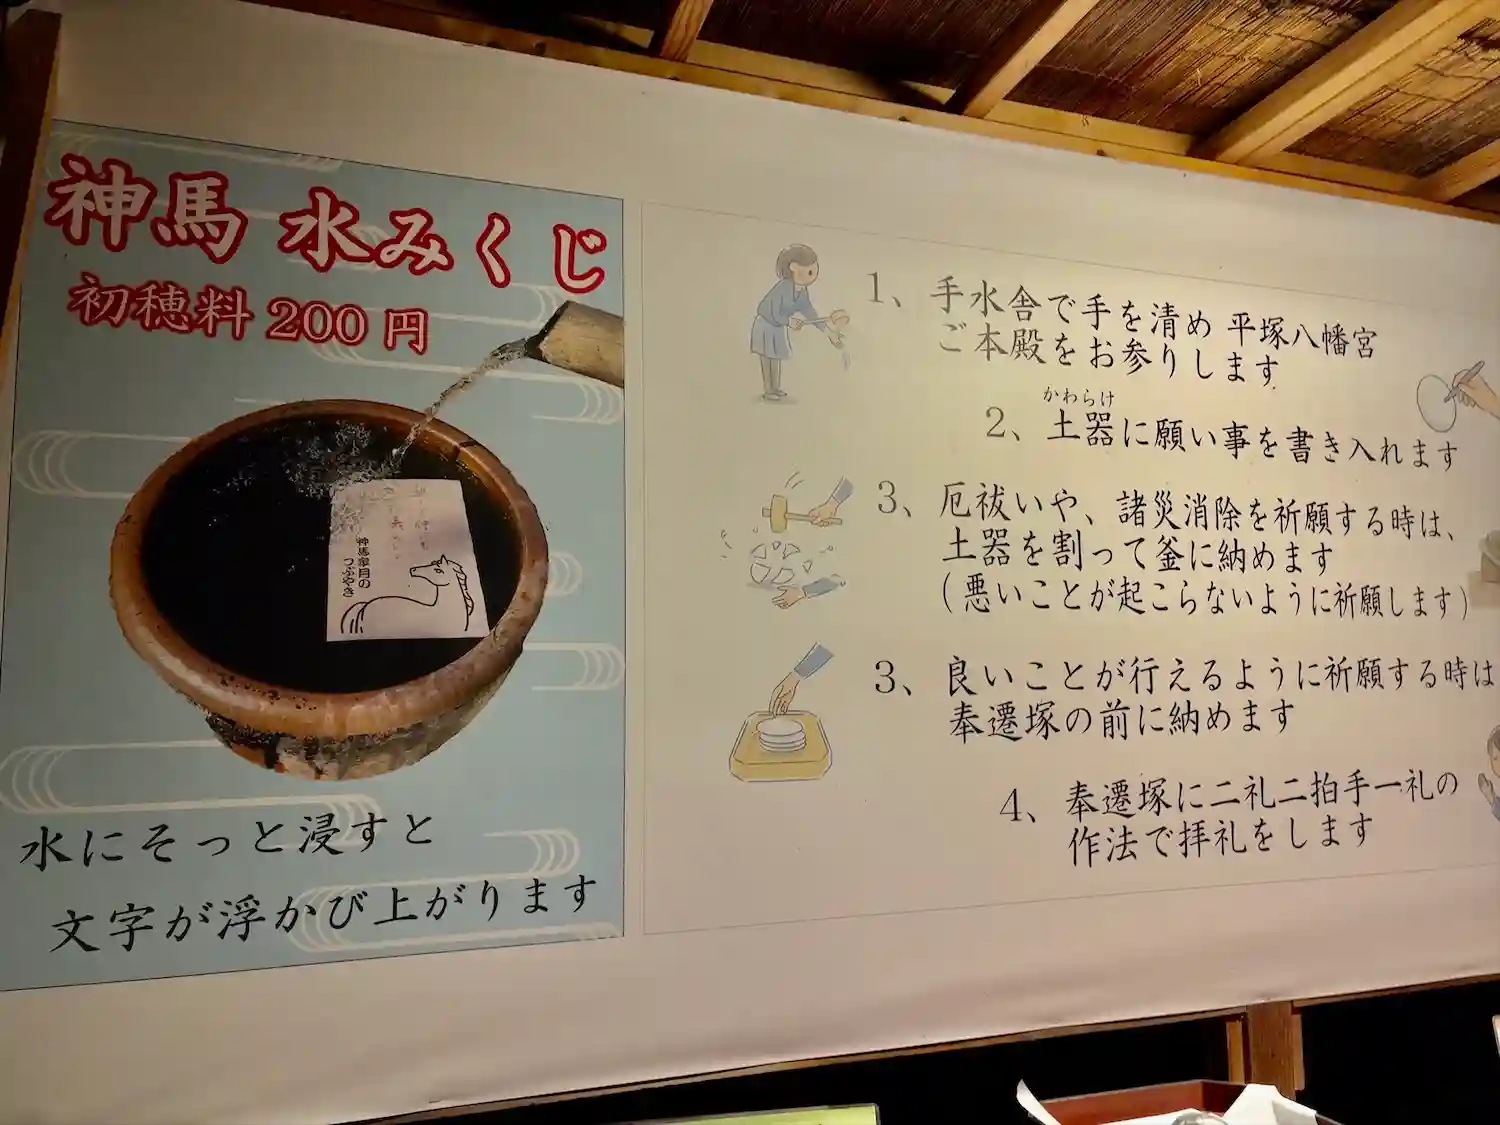 神馬 水みくじ
初穂料 200 円
神馬家目の
つぶやき
水にそっと浸すと
文字が浮かび上がります
1、手水舎で手を清め 平塚八幡宮
ご本殿をお参りします
かわらけ
2、土器に願い事を書き入れます
3、厄祓いや、諸災消除を祈願する時は、
土器を割って釜に納めます
(悪いことが起こらないように祈願します)
3、良いことが行えるように祈願する時は
奉遷塚の前に納めます
4、奉遷塚に二礼二拍手一礼の
作法で拝礼をします